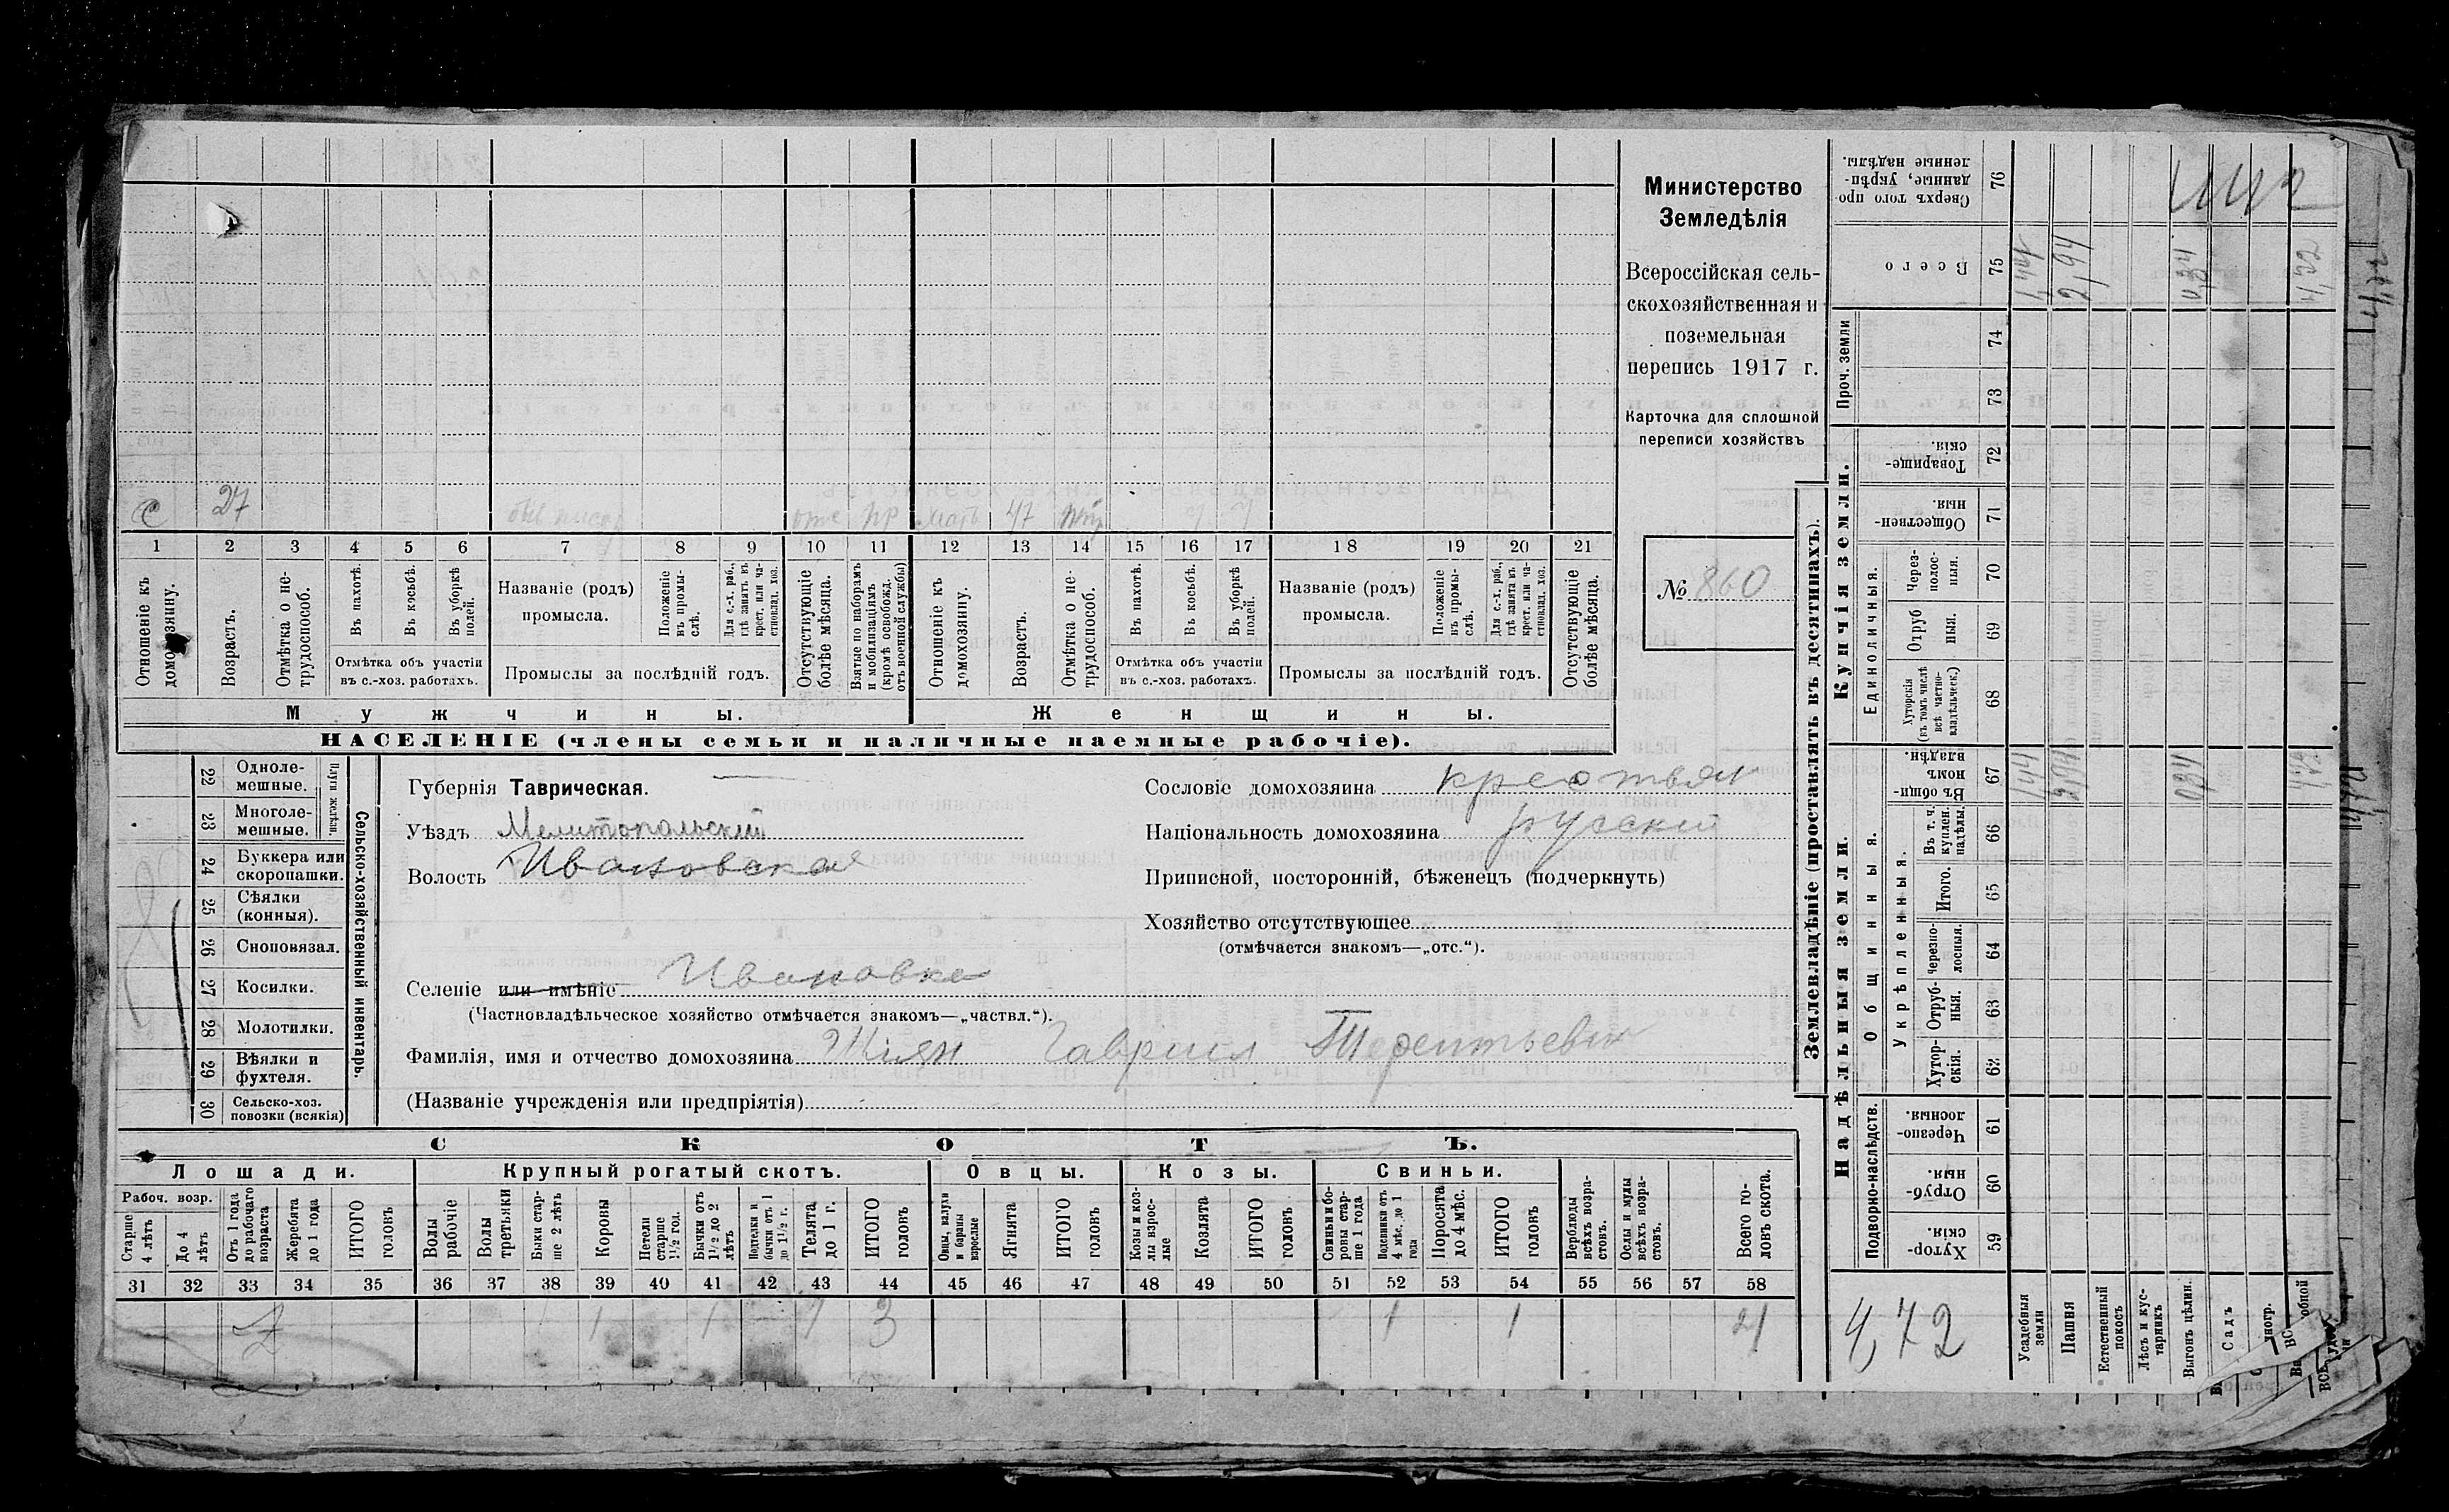 Министерство
Земледѣлія
Всероссійская сель-
скохозяйственная и
поземельная
перепись 1917 г.
Карточка для сплошной
переписи хозяйствъ
№ 860
С 27 мать 47
1 2 3 4 5 6 7 8 9 10 11 12 13 14 15 16 17 18 19 20 21
Отношеніе къ домохозяину.
Возрастъ.
Отмѣтка о не-трудоспособ.
Въ пахотѣ.
Въ косьбѣ.
Въ уборкѣ полей.
Отмѣтка объ участіи
въ с.-хоз. работахъ.
Названіе (родъ)
промысла.
Положеніе въ промы-слѣ.
Для с.-х. раб., гдѣ занятъ въ крест. или ча-стновлад. хоз.
Промыслы за послѣдній годъ.
Отсутствующіе болѣе мѣсяца.
Взятые по наборамъ и мобилизаціямъ (кромѣ освобожд. отъ военной службы)
Отношеніе къ домохозяину.
Возрастъ.
Отмѣтка о не-трудоспособ.
Въ пахотѣ.
Въ косьбѣ.
Въ уборкѣ полей.
Отмѣтка объ участіи
въ с.-хоз. работахъ.
Названіе (родъ)
промысла.
Положеніе въ промы-слѣ.
Для с.-х. раб., гдѣ занята въ крест. или ча-стновлад. хоз.
Промыслы за послѣдній годъ.
Отсутствующіе болѣе мѣсяца.
Мужчины.
Женщины.
НАСЕЛЕНІЕ (члены семьи и наличные наемные рабочіе).
Сельско-хозяйственный инвентарь.
Плуги желѣзн.
22 Одноле-мешные.
23 Многоле-мешные.
24 Буккера или скоропашки.
25 Сѣялки (конныя).
26 Сноповязал.
27 Косилки.
28 Молотилки.
29 Вѣялки и фухтеля.
30 Сельско-хоз. повозки (всякія)
Губернія Таврическая.
Уѣздъ Мелитопольскій
Волость Ивановская
Селеніе или имѣніе Ивановка
(Частновладѣльческое хозяйство отмѣчается знакомъ—„частвл.“).
Фамилія, имя и отчество домохозяина Гавриил Терентьевич
(Названіе учрежденія или предпріятія)
Сословіе домохозяина крестьян
Національность домохозяина русский
Приписной, посторонній, бѣженецъ (подчеркнуть)
Хозяйство отсутствующее
(отмѣчается знакомъ—„отс.“).
СКОТЪ.
Лошади.
Крупный рогатый скотъ.
Овцы.
Козы.
Свиньи.
Рабоч. возр.
Старше 4 лѣтъ
До 4 лѣтъ
Отъ 1 года до рабочаго возраста
Жеребята до 1 года
ИТОГО головъ
Волы рабочіе
Волы третьяки
Быки стар-ше 2 лѣтъ
Коровы
Нетели старше 1½ год.
Бычки отъ 1½ до 2 лѣтъ
Подтелки и бычки отъ 1 до 1½ г.
Телята до 1 г.
ИТОГО головъ
Овцы, валухи и бараны взрослые
Ягнята
ИТОГО головъ
Козы и коз-лы взрос-лые
Козлята
ИТОГО головъ
Свиньи и бо-ровы стар-ше 1 года
Подсвинки отъ 4 мѣс. до 1 года
Поросята до 4 мѣс.
ИТОГО головъ
Верблюды всѣхъ возра-стовъ.
Ослы и мулы всѣхъ возра-стовъ.
Всего го-ловъ скота.
31 32 33 34 35 36 37 38 39 40 41 42 43 44 45 46 47 48 49 50 51 52 53 54 55 56 57 58
1 1 1 3 1 1 4
Землевладѣніе (проставлять въ десятинахъ).
Надѣльныя земли.
Купчія земли.
Проч. земли
Подворно-наслѣдств.
Общинныя.
Укрѣпленныя.
Единоличныя.
Сверхъ того про-данные, укрѣп-ленные надѣлы. 76
Всего 75
74
73
Товарище-скія. 72
Обществен-ныя. 71
Через-полос-ныя. 70
Отруб ныя. 69
Хуторскія (въ томъ числѣ всѣ частно-владѣльческ.) 68
Въ общи-номъ владѣн. 67
Въ т. ч. куплен. надѣлы. 66
Итого. 65
Черезпо-лосныя. 64
Отруб-ныя. 63
Хутор-скія. 62
Черезпо-лосныя. 61
Отруб-ныя. 60
Хутор-скія. 59
2,94
4,72
Усадебныя земли
Пашня
Естественный покосъ
Лѣсъ и кус-тарникъ
Выгонъ цѣлин.
Садъ